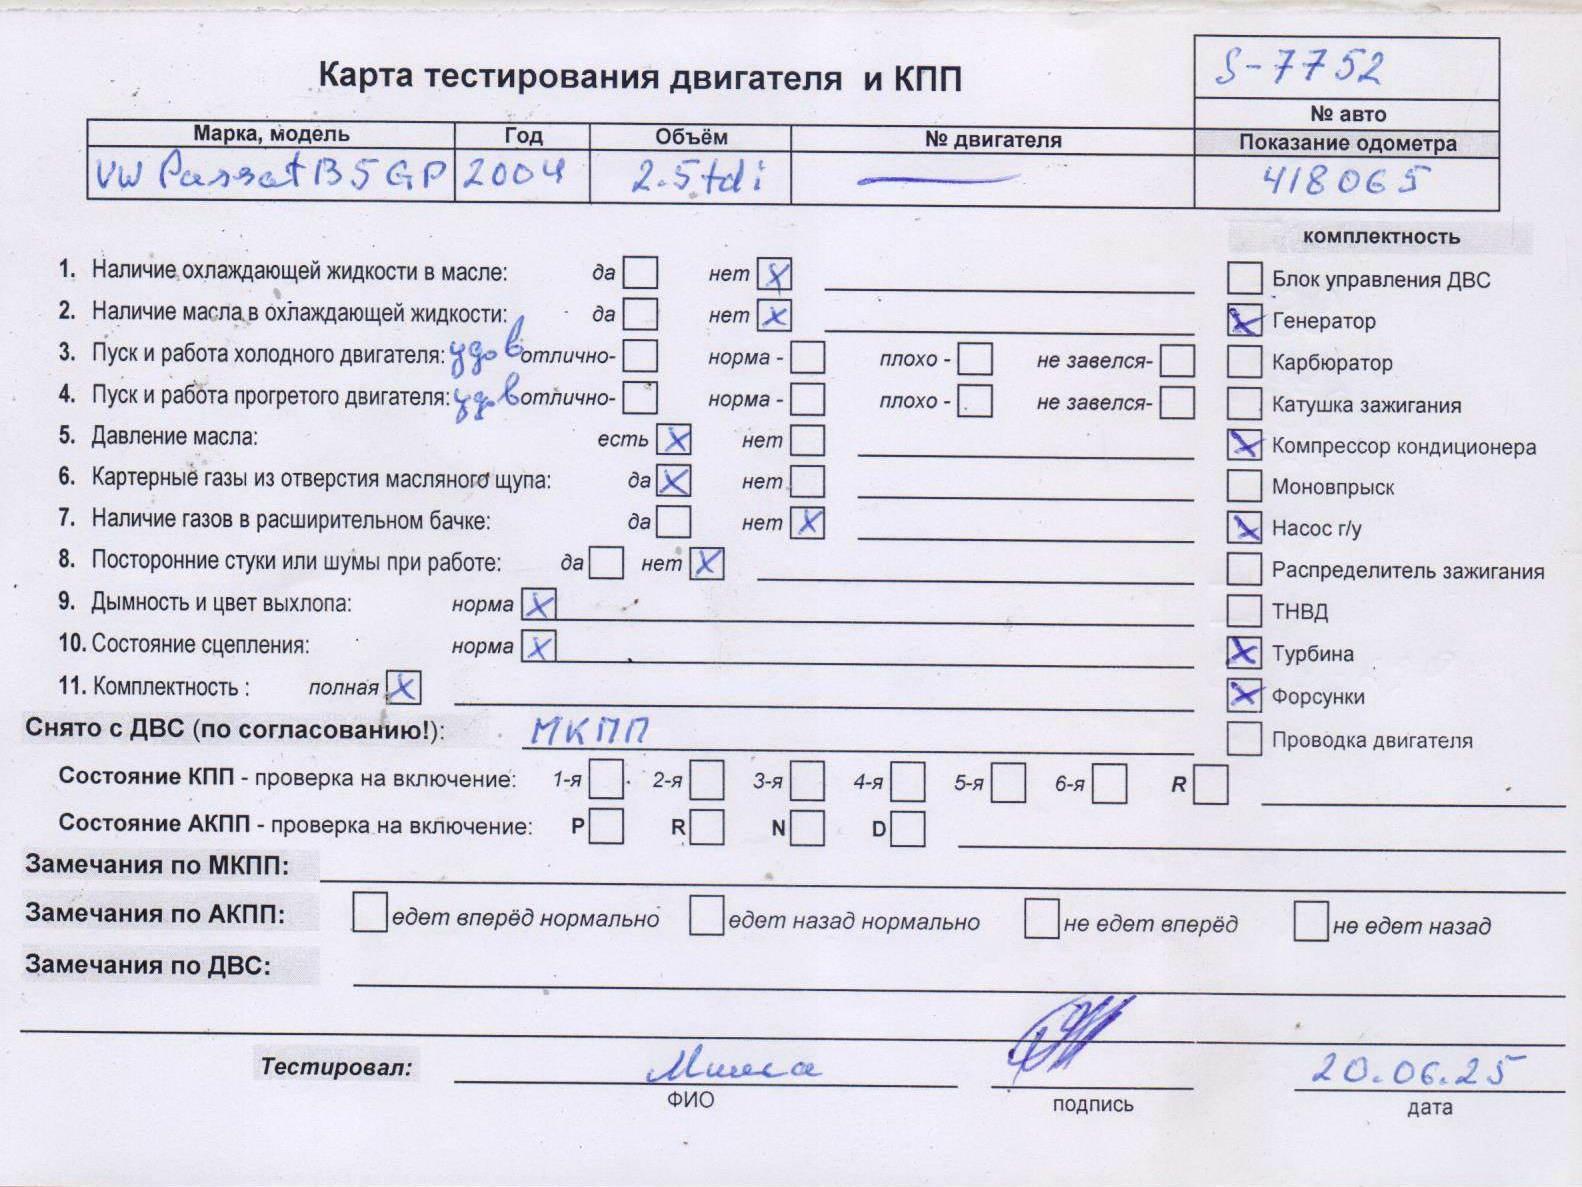 Карта тестирования двигателя и КПП
S-7752
№ авто
Марка, модель Год Объём № двигателя Показание одометра
VW Passat B5 GP 2004 2.5 tdi — 418065
комплектность
1. Наличие охлаждающей жидкости в масле: да нет x
Блок управления ДВС
2. Наличие масла в охлаждающей жидкости: да нет x
x Генератор
3. Пуск и работа холодного двигателя: удов отлично- норма - плохо - не завелся-
Карбюратор
4. Пуск и работа прогретого двигателя: удов отлично- норма - плохо - не завелся-
Катушка зажигания
5. Давление масла: есть x нет
x Компрессор кондиционера
6. Картерные газы из отверстия масляного щупа: да x нет
Моновпрыск
7. Наличие газов в расширительном бачке: да нет x
x Насос г/у
8. Посторонние стуки или шумы при работе: да нет x
Распределитель зажигания
9. Дымность и цвет выхлопа: норма x
ТНВД
10. Состояние сцепления: норма x
x Турбина
11. Комплектность : полная x
x Форсунки
Снято с ДВС (по согласованию!): МКПП
Проводка двигателя
Состояние КПП - проверка на включение: 1-я 2-я 3-я 4-я 5-я 6-я R
Состояние АКПП - проверка на включение: P R N D
Замечания по МКПП:
Замечания по АКПП: едет вперёд нормально едет назад нормально не едет вперёд не едет назад
Замечания по ДВС:
Тестировал: Миша 20.06.25
ФИО подпись дата